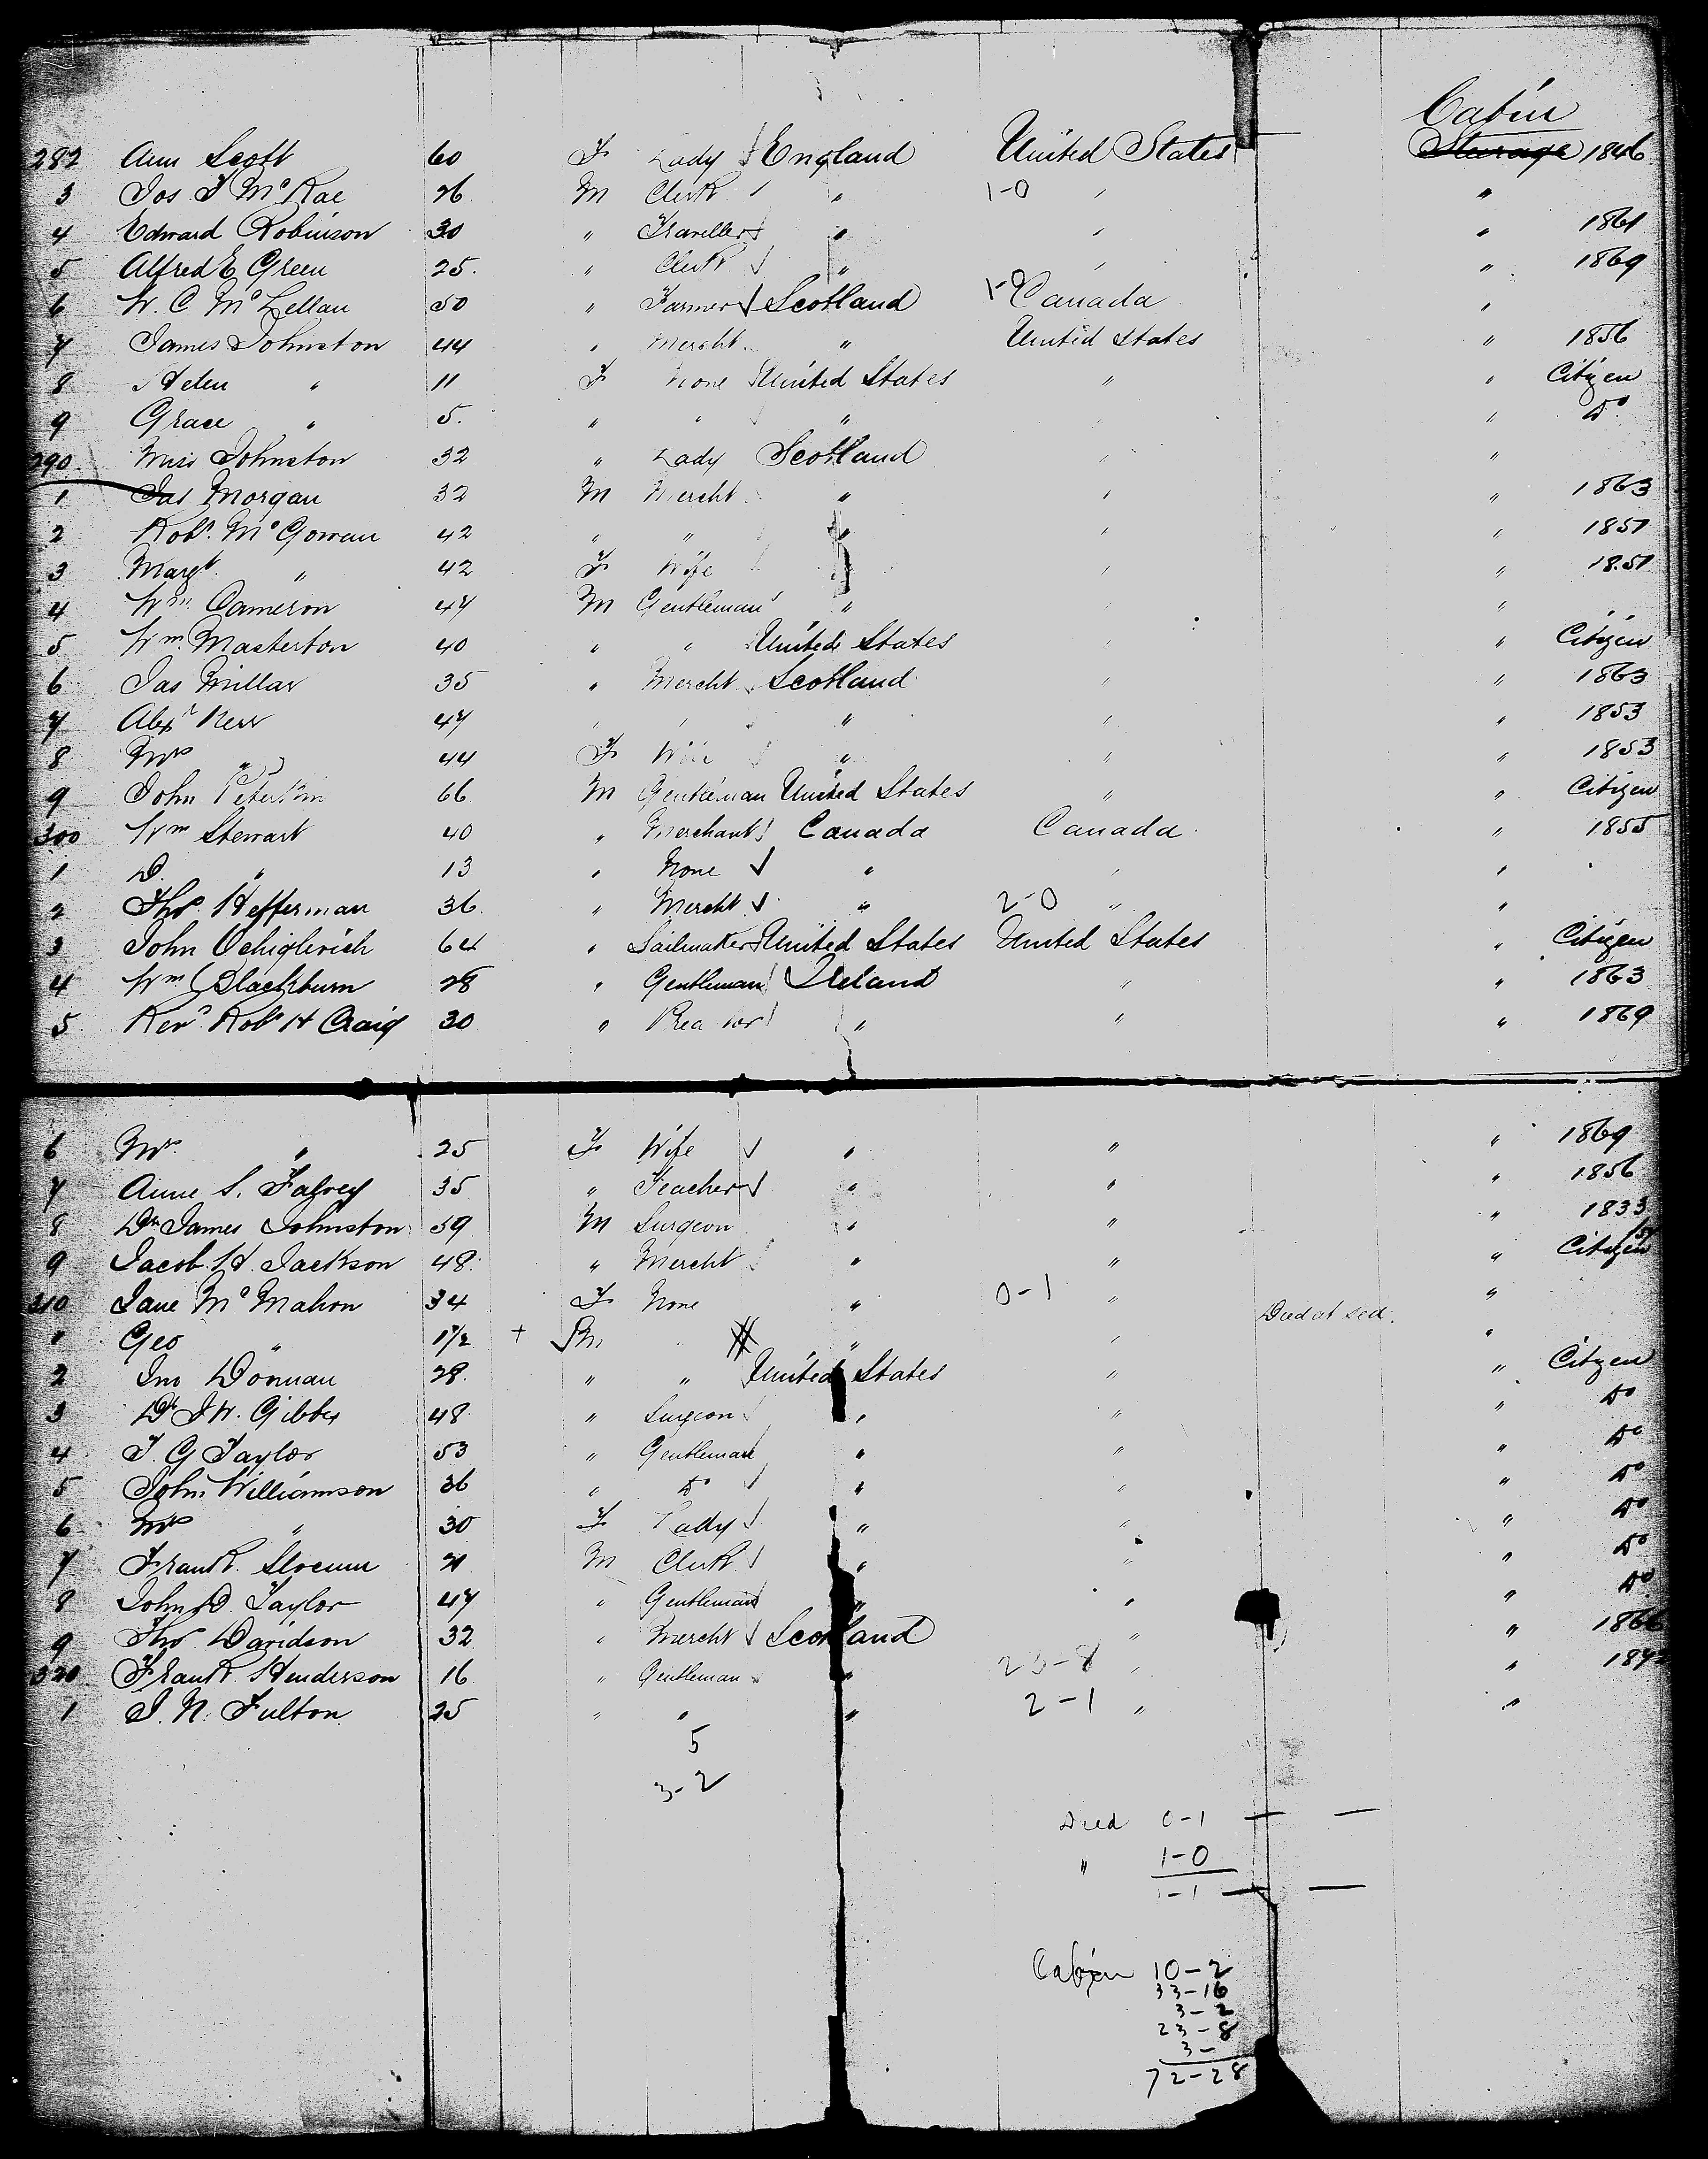 Cabin
282 Ann Scott 60 F Lady England United States Steerage 1846
3 Jos. F McRae 26 M Clerk " 1-0 " "
4 Edward Robinson 30 " Traveller " " " 1861
5 Alfred E Green 25. " Clerk " " " 1869
6 W. C McLellan 50 " Farmer Scotland 1-0 Canada "
7 James Johnston 44 " Mercht. " United States " 1856
8 Helen " 11 F None United States " " Citizen
9 Grace " 5. " " " " " Do
290 Miss Johnston 32 " Lady Scotland " "
1 Jas Morgan 32 M Mercht " " " 1863
2 Robt. McGowan 42 " " " " " 1851
3 Margt. " 42 F Wife " " 1851
4 Wm. Cameron 47 M Gentleman " " "
5 Wm. Masterton 40 " " United States " " Citizen
6 Jas Millar 35 " Mercht Scotland " " 1863
7 Alexr Kerr 47 " " " " " 1853
8 Mrs " 44 F Wife " " " 1853
9 John Peterkin 66 M Gentleman United States " " Citizen
300 Wm Stewart 40 " Merchant Canada Canada " 1855
1 D. " 13 " None " " "
2 Thos. Hefferman 36. " Mercht " 2-0 " "
3 John 64 " Sailmaker United States United States " Citizen
4 Wm Blackburn 28 " Gentleman Ireland " " 1863
5 Revd. Robt H Craig 30 " " " " 1869
6 Mrs. " 25 F Wife " " " 1869
7 Anne S. 35 " Teacher " " " 1856
8 Dr James Johnston 59 M Surgeon " " " 1833
9 Jacob. H. Jackson 48 " Mercht " " " Citizen
310 Jane McMahon 34 F None " 0-1 " "
1 Geo " + M " " Died at sea. "
2 Jno Donnan 28. " " United States " " Citizen
3 Dr J W. Gibbs 48 " Surgeon " " " Do
4 T. G Taylor 53 " Gentleman " " " Do
5 John Williamson 36 " Do " " " Do
6 Mrs " 30 F Lady " " " Do
7 Frank. Slocum 21 M Clerk " " " Do
8 John D. Taylor 47 " Gentleman " " " Do
9 Thos Davidson 32 " Mercht Scotland " "
320 Frank. Henderson 16 " Gentleman " 23-8 " "
1 J. N. Fulton 25 " " " 2-1 " "
5
3-2
Died 0-1
" 1-0
1-1
Cabin 10-2
33-16
3-2
23-8
3-
72-28